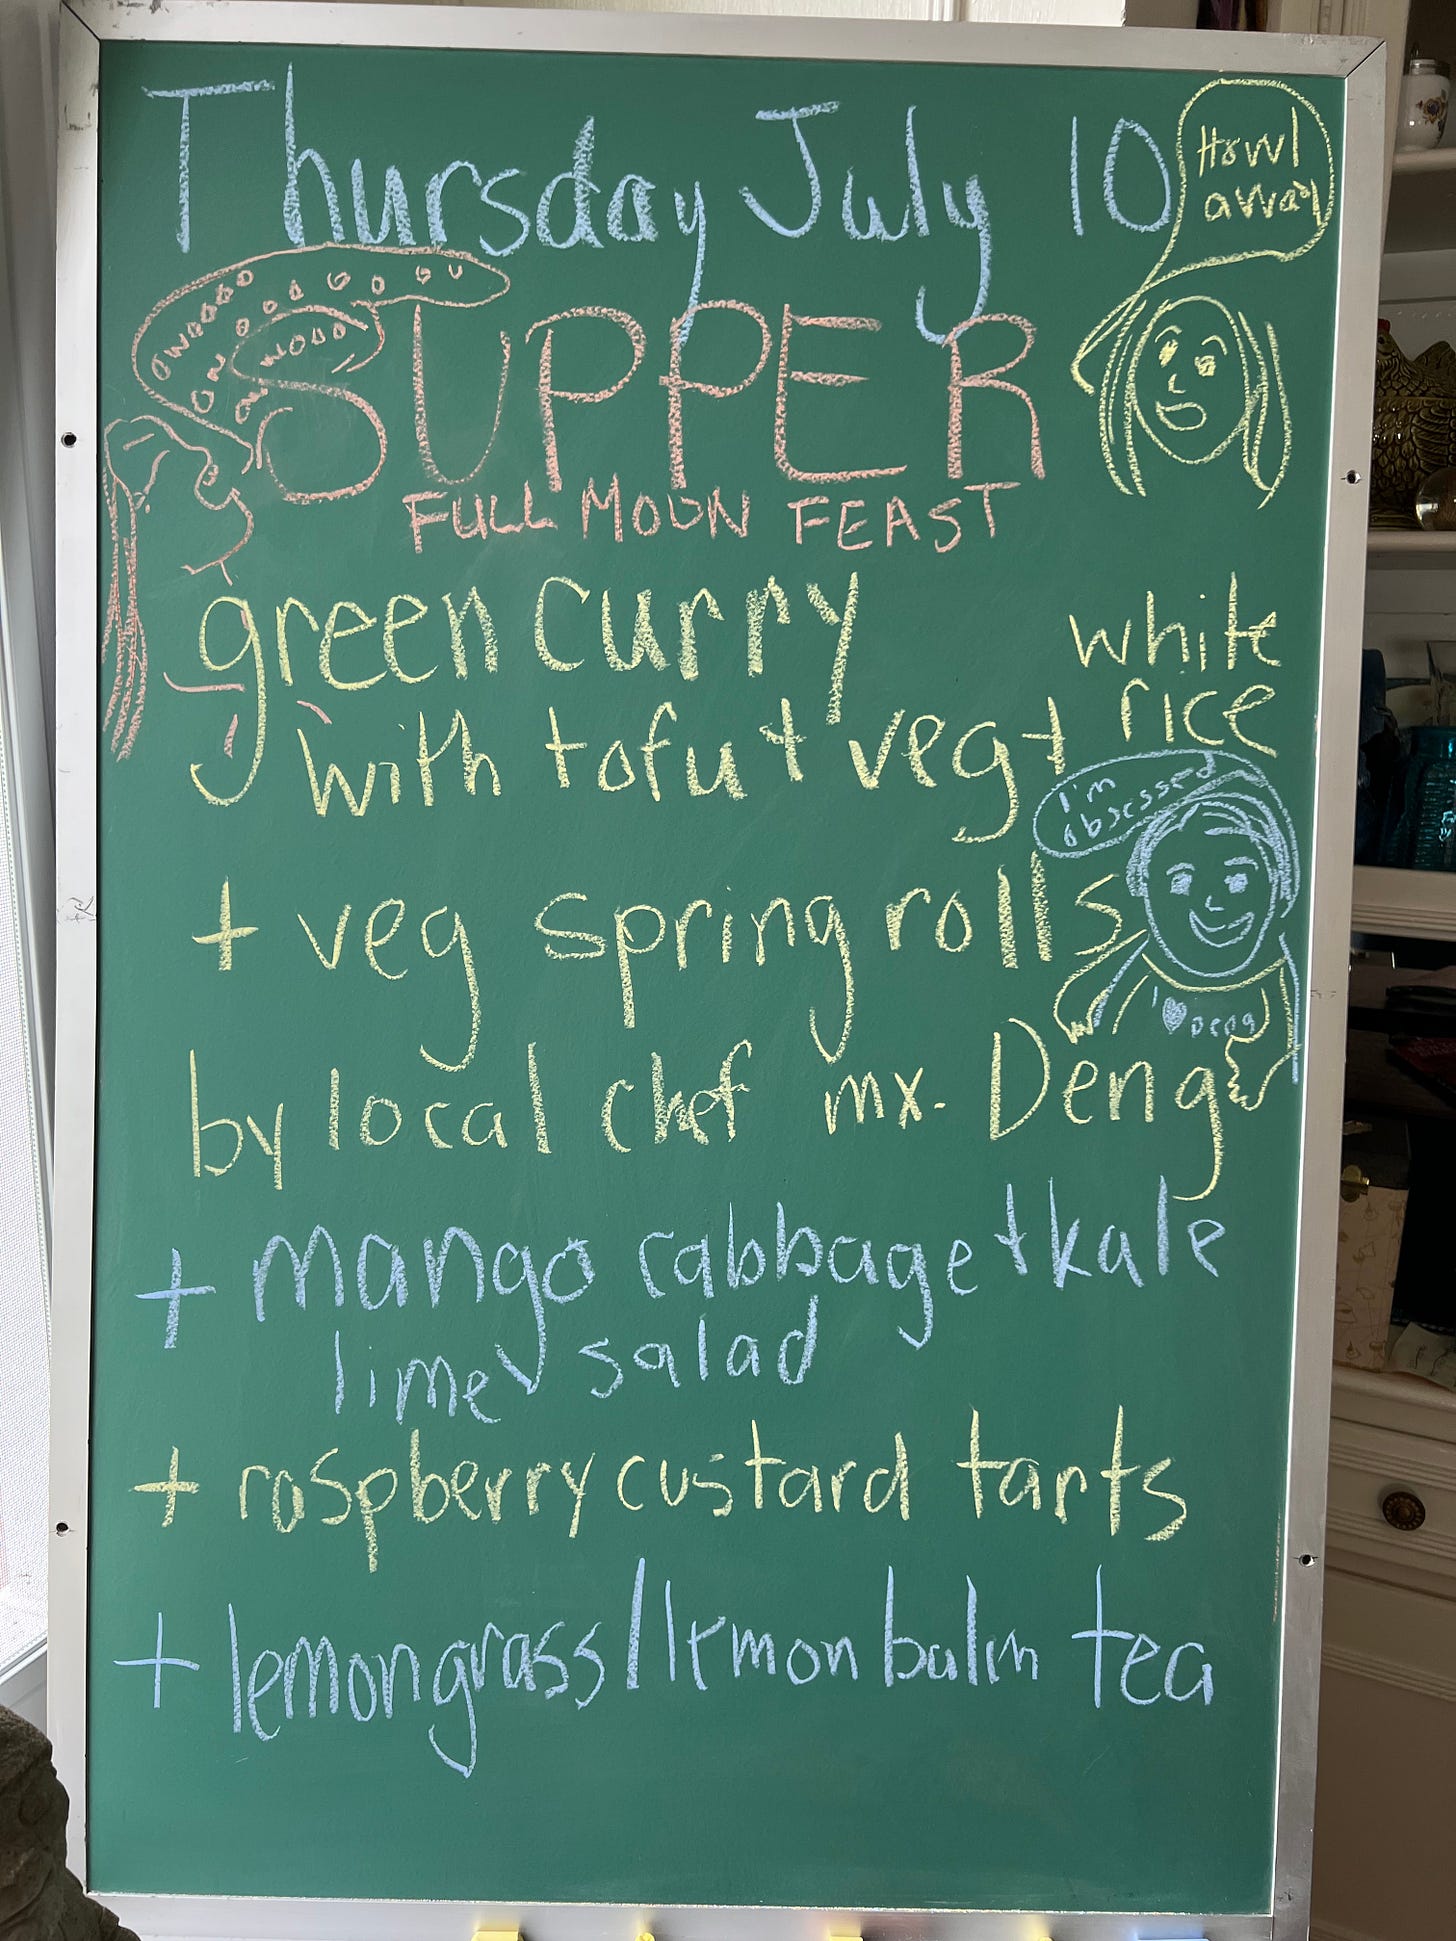 Thursday July 10
Howl
away
SUPPER
FULL MOON FEAST
green curry
with tofu + veg + white
rice
I'm
obsessed
+ veg spring rolls
I ♥ Deng
by local chef mx. Deng
+ mango cabbage + kale
lime salad
+ raspberry custard tarts
+ lemongrass / lemon balm tea